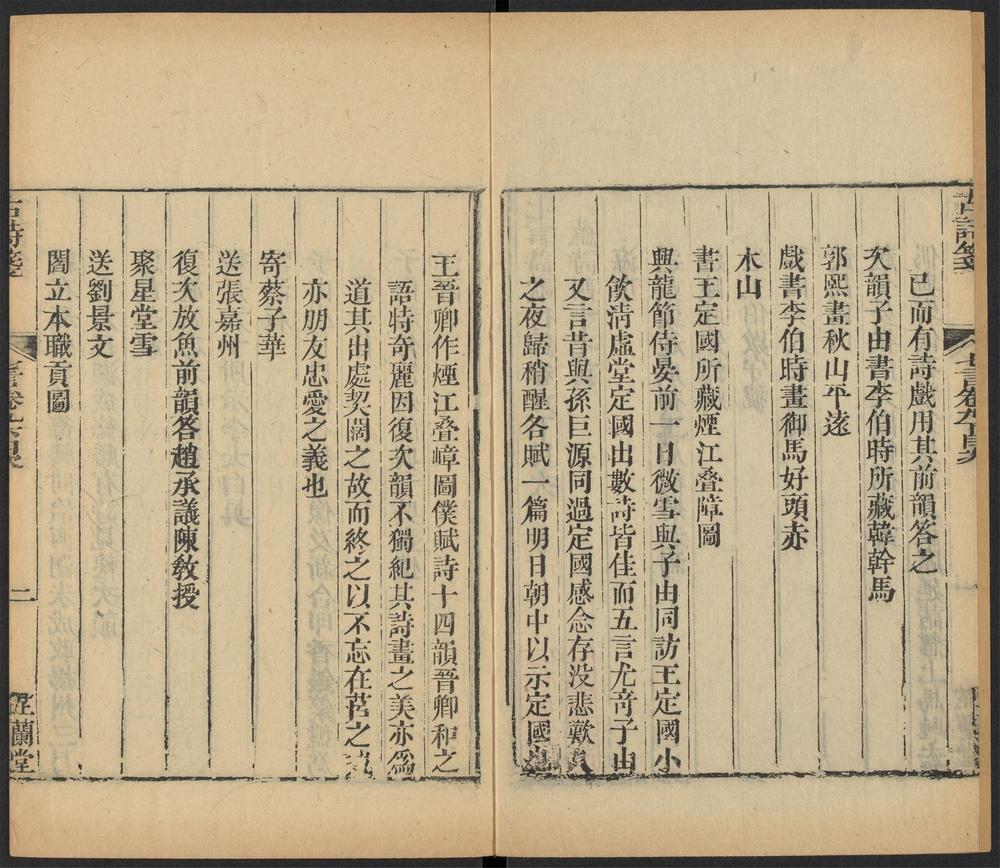 已而有詩戲用其前韻答之
次韻子由書李伯時所藏韓幹馬
郭熙畫秋山平遠
戲書李伯時畫御馬好頭赤
木山
書王定國所藏煙江叠嶂圖
興龍節侍晏前一日微雪與子由同訪王定國小
飲淸虛堂定國出數詩皆佳而五言尤奇子由
又言昔與孫巨源同過定國感念存没悲歎久
之夜歸稍醒各賦一篇明日朝中以示定國也
王晉卿作煙江叠嶂圖僕賦詩十四韻晉卿和之
語特奇麗因復次韻不獨紀其詩畫之美亦爲
道其出處契闊之故而終之以不忘在莒之
亦朋友忠愛之義也
寄蔡子華
送張嘉州
復次放魚前韻答趙承議陳敎授
聚星堂雪
送劉景文
閻立本職貢圖
古詩箋
二
芷蘭堂